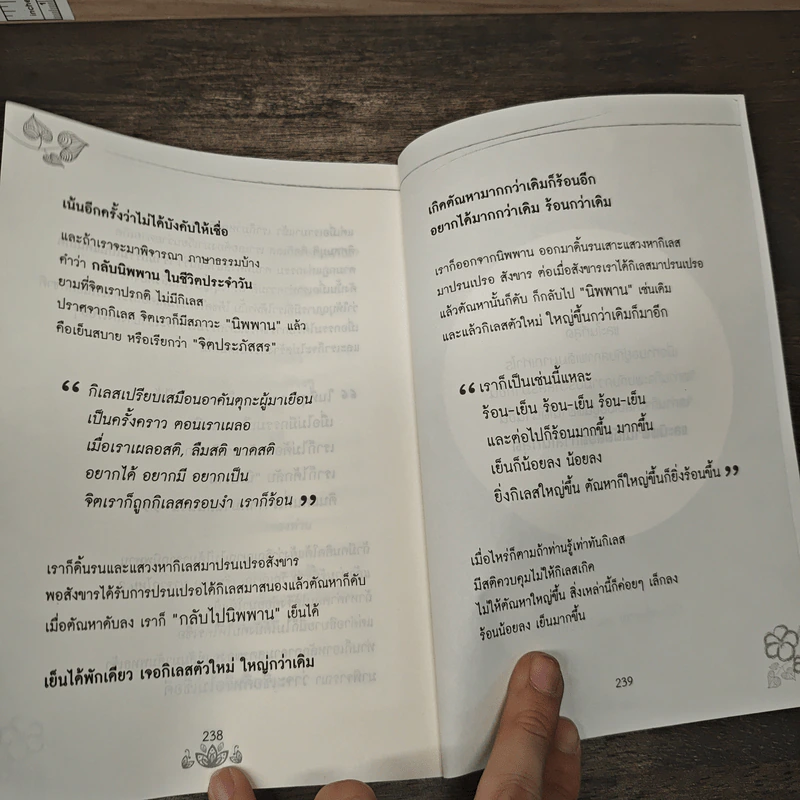 เน้นอีกครั้งว่าไม่ได้บังคับให้เชื่อ
และถ้าเราจะมาพิจารณา ภาษาธรรมบ้าง
คำว่า กลับนิพพาน ในชีวิตประจำวัน
ยามที่จิตเราปรกติ ไม่มีกิเลส
ปราศจากกิเลส จิตเราก็มีสภาวะ "นิพพาน" แล้ว
คือเย็นสบาย หรือเรียกว่า "จิตประภัสสร"
“ กิเลสเปรียบเสมือนอาคันตุกะผู้มาเยือน
เป็นครั้งคราว ตอนเราเผลอ
เมื่อเราเผลอสติ, ลืมสติ ขาดสติ
อยากได้ อยากมี อยากเป็น
จิตเราก็ถูกกิเลสครอบงำ เราก็ร้อน ”
เราก็ดิ้นรนและแสวงหากิเลสมาปรนเปรอสังขาร
พอสังขารได้รับการปรนเปรอได้กิเลสมาสนองแล้วตัณหาก็ดับ
เมื่อตัณหาดับลง เราก็ "กลับไปนิพพาน" เย็นได้
เย็นได้พักเดียว เจอกิเลสตัวใหม่ ใหญ่กว่าเดิม
238
เกิดตัณหามากกว่าเดิมก็ร้อนอีก
อยากได้มากกว่าเดิม ร้อนกว่าเดิม
เราก็ออกจากนิพพาน ออกมาดิ้นรนเสาะแสวงหากิเลส
มาปรนเปรอ สังขาร ต่อเมื่อสังขารเราได้กิเลสมาปรนเปรอ
แล้วตัณหานั้นก็ดับ ก็กลับไป "นิพพาน" เช่นเดิม
และแล้วกิเลสตัวใหม่ ใหญ่ขึ้นกว่าเดิมก็มาอีก
“ เราก็เป็นเช่นนี้แหละ
ร้อน-เย็น ร้อน-เย็น ร้อน-เย็น
และต่อไปก็ร้อนมากขึ้น มากขึ้น
เย็นก็น้อยลง น้อยลง
ยิ่งกิเลสใหญ่ขึ้น ตัณหาก็ใหญ่ขึ้นก็ยิ่งร้อนขึ้น ”
เมื่อไหร่ก็ตามถ้าท่านรู้เท่าทันกิเลส
มีสติควบคุมไม่ให้กิเลสเกิด
ไม่ให้ตัณหาใหญ่ขึ้น สิ่งเหล่านี้ก็ค่อยๆ เล็กลง
ร้อนน้อยลง เย็นมากขึ้น
239